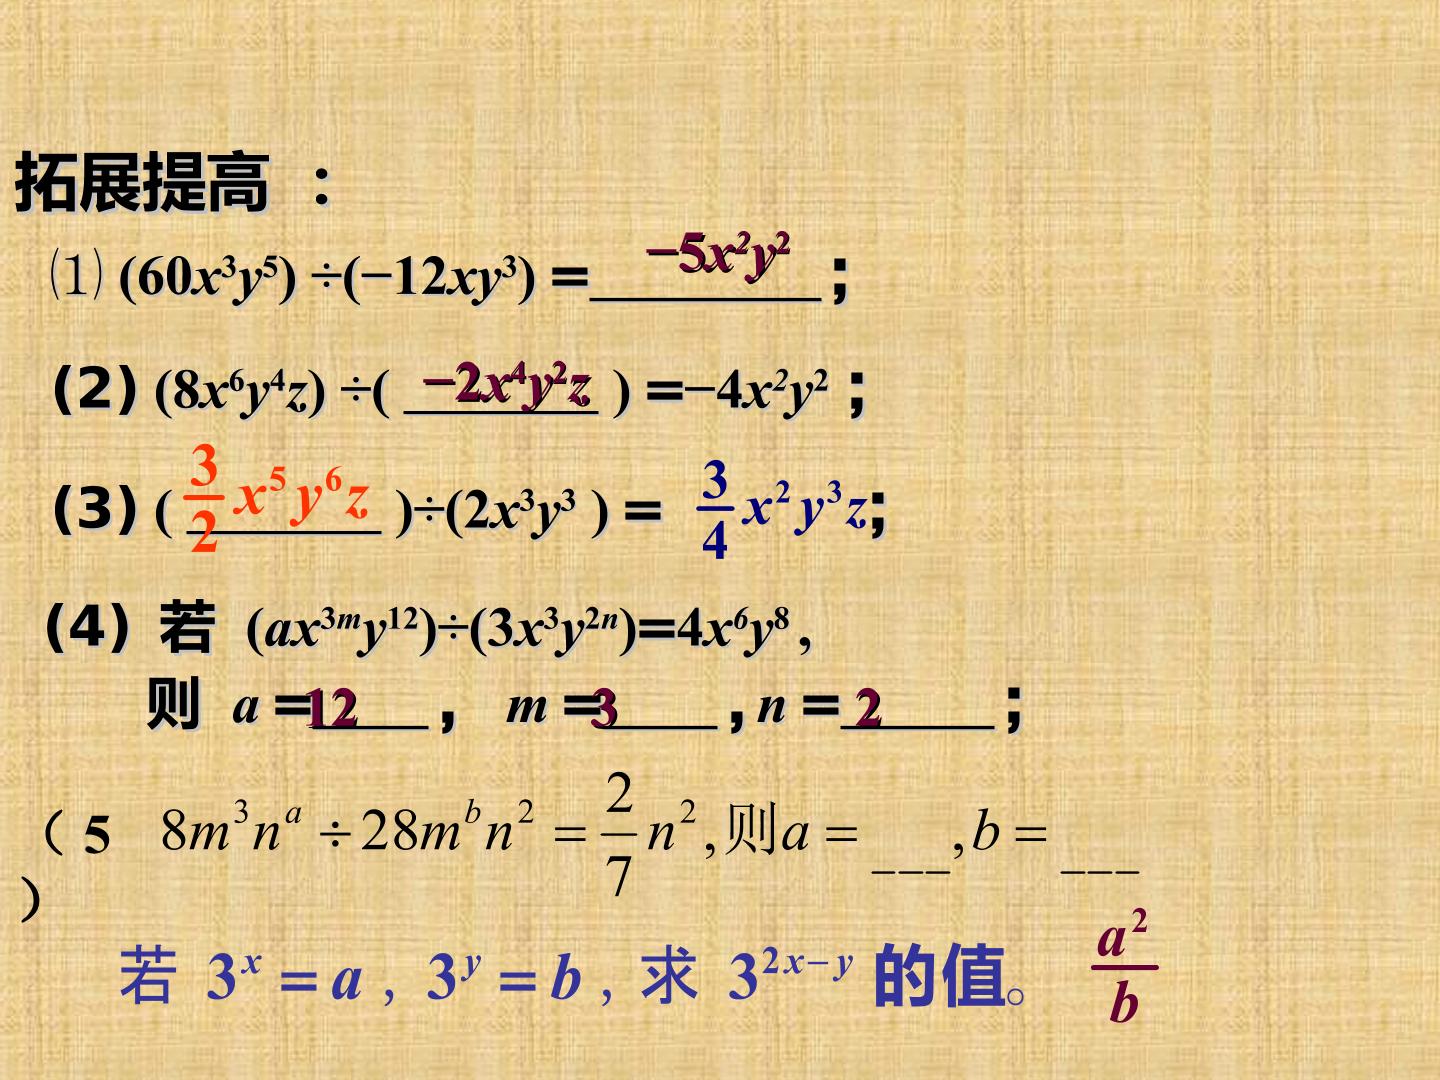 拓展提高 ：
⑴ (60x³y⁵) ÷(−12xy³) =________ ;
−5x²y²
(2) (8x⁶y⁴z) ÷( −2x⁴y²z ) =−4x²y² ;
(3) ( 3/2 x⁵y⁶z )÷(2x³y³ ) = 3/4 x²y³z;
(4) 若 (ax³ᵐy¹²)÷(3x³y²ⁿ)=4x⁶y⁸ ,
则 a =12 , m =3 , n = 2 ;
（5） 8m³nᵃ ÷ 28mᵇn² = 2/7 n² ,则a = ___ , b = ___
若 3ˣ = a , 3ʸ = b , 求 3²ˣ⁻ʸ 的值。 a²/b